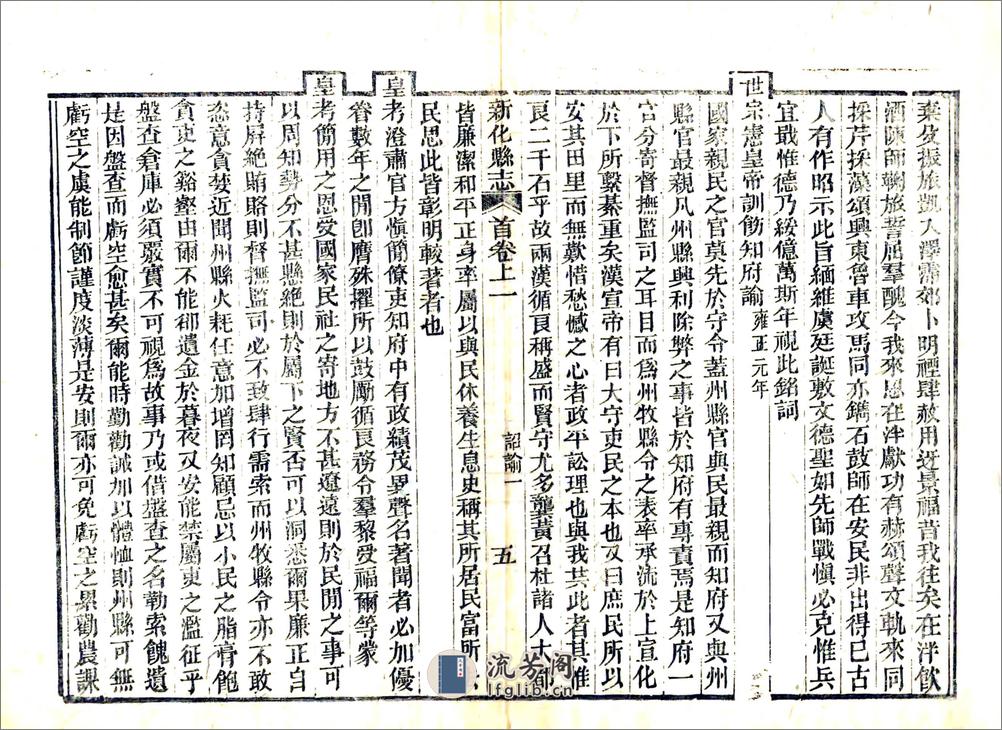 櫜弓振旅凱入澤霈郊卜明禋肆赦用迓景福昔我往矣在泮飲
酒陳師鞠旅誓屈羣醜今我來思在泮獻功有赫頌聲文軌來同
採芹採藻頌興東魯車攻馬同亦鐫石鼓師在安民非出得已古
人有作昭示此旨緬維虞廷誕敷文德聖如先師戰愼必克惟兵
宜戢惟德乃綏億萬斯年視此銘詞
世宗憲皇帝訓飭知府諭 雍正元年
國家親民之官莫先於守令蓋州縣官與民最親而知府又與州
縣官最親凡州縣興利除弊之事皆於知府有專責焉是知府一
官分寄督撫監司之耳目而爲州牧縣令之表率承流於上宣化
於下所繫綦重矣漢宣帝有曰太守吏民之本也又曰庶民所以
安其田里而無歎惜愁憾之心者政平訟理也與我共此者其惟
良二千石乎故兩漢循良稱盛而賢守尤多龔黃召杜諸人大都
新化縣志 首卷上一 詔諭一 五
皆廉潔和平正身率屬以與民休養生息史稱其所居民富所
民思此皆彰明較著者也
皇考澄肅官方愼簡僚吏知府中有政績茂異聲名著聞者必加優
眷數年之閒卽膺殊擢所以鼓勵循良務令羣黎受福爾等蒙
皇考簡用之恩受國家民社之寄地方不甚遼遠則於民閒之事可
以周知勢分不甚縣絶則於屬下之賢否可以洞悉爾果廉正自
持屏絶賄賂則督撫監司必不致肆行需索而州牧縣令亦不敢
恣意貪婪近聞州縣火耗任意加增罔知顧忌以小民之脂膏飽
貪吏之谿壑由爾不能卻遺金於暮夜又安能禁屬吏之濫征乎
盤查倉庫必須嚴實不可視爲故事乃或借盤查之名勒索餽遺
是因盤查而虧空愈甚矣爾能時勤勸誡加以體恤則州縣可無
虧空之虞能制節謹度淡薄是安則爾亦可免虧空之累勸農課
流芳阁
lfglib.cn